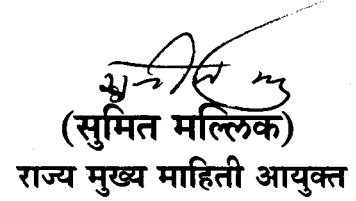 (सुमित मल्लिक)
राज्य मुख्य माहिती आयुक्त